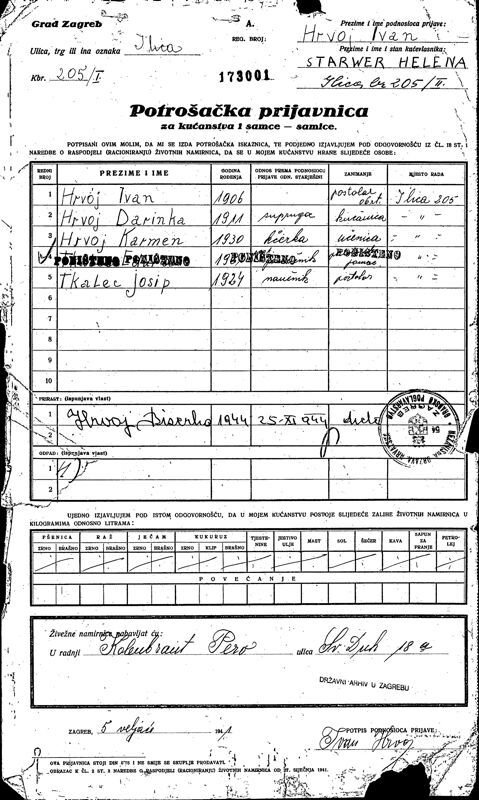 Grad Zagreb
Ulica, trg ili ina oznaka Ilica
Kbr. 205/I
A.
REG. BROJ:
173001
Prezime i ime podnosioca prijave:
Hrvoj Ivan
Prezime i ime i stan kućevlasnika:
STARWER HELENA
Ilica br 205/II.
Potrošačka prijavnica
za kućanstva i samce — samice.
POTPISANI OVIM MOLIM, DA MI SE IZDA POTROŠAČKA ISKAZNICA, TE PODJEDNO IZJAVLJUJEM POD ODGOVORNOŠĆU IZ ČL. 18 ST. 1
NAREDBE O RASPODJELI (RACIONIRANJU) ŽIVOTNIH NAMIRNICA, DA SE U MOJEM KUĆANSTVU HRANE SLIJEDEĆE OSOBE:
REDNI BROJ PREZIME I IME GODINA ROĐENJA ODNOS PREMA PODNOSIOCU PRIJAVE ODN. STARJEŠINI ZANIMANJE MJESTO RADA
1 Hrvoj Ivan 1906 postolar obrt. Ilica 205
2 Hrvoj Darinka 1911 supruga kućanica - " -
3 Hrvoj Karmen 1930 kćerka učenica - " -
4 PONIŠTENO PONIŠTENO PONIŠTENO PONIŠTENO - " -
5 Tkalec Josip 1924 naučnik postolar - " -
6
7
8
9
10
PRIRAST: (ispunjava vlast)
1 Hrvoj 1944 25-XI 944
2
NEZAVISNA DRŽAVA HRVATSKA
ZAGREB
ODPAD: (ispunjava vlast)
1
2
UJEDNO IZJAVLJUJEM POD ISTOM ODGOVORNOŠĆU, DA U MOJEM KUĆANSTVU POSTOJE SLIJEDEĆE ZALIHE ŽIVOTNIH NAMIRNICA U
KILOGRAMIMA ODNOSNO LITRAMA:
PŠENICA RAŽ JEČAM KUKURUZ TJESTENINE JESTIVO ULJE MAST SOL ŠEĆER KAVA SAPUN ZA PRANJE PETROLEJ
ZRNO BRAŠNO ZRNO BRAŠNO ZRNO BRAŠNO ZRNO KLIP BRAŠNO
POVEĆANJE
Živežne namirnice nabavljat ću:
U radnji Pero ulica Sv. Duh 18 a
DRŽAVNI ARHIV U ZAGREBU
ZAGREB, 5 veljače 1941
POTPIS PODNOSIOCA PRIJAVE:
Ivan Hrvoj
OVA PRIJAVNICA STOJI DIN 0'75 I NE SMIJE SE SKUPLJE PRODAVATI.
OBRAZAC K ČL. 2 ST. 2 NAREDBE O RASPODJELI (RACIONIRANJU) ŽIVOTNIH NAMIRNICA OD SIJEČNJA 1941.